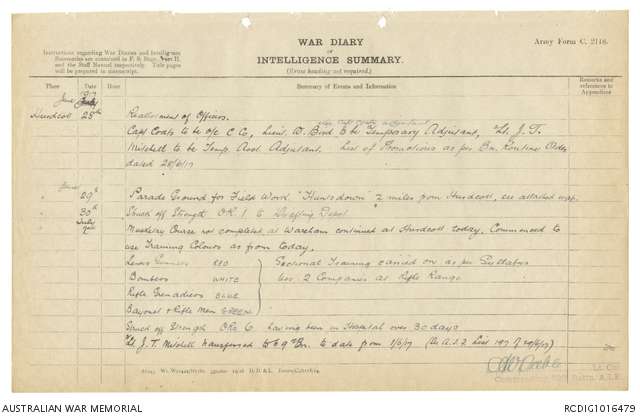 WAR DIARY
or
INTELLIGENCE SUMMARY.
(Erase heading not required.)
Army Form C. 2118.
Instructions regarding War Diaries and Intelligence
Summaries are contained in F. S. Regs., Part II.
and the Staff Manual respectively. Title pages
will be prepared in manuscript.
Place Date Hour Summary of Events and Information Remarks and references to Appendices
June
Hurdcott 28th Reallotment of Officers.
vice Capt Coats adjutant
Capt Coats to be o/c C Co, Lieut. W. Bird to be Temporary Adjutant, 2/Lt. J. T.
Mitchell to be Temp. Asst. Adjutant. List of Promotions as per Bn. Routine Order
dated 28/6/17
June
" 29th Parade Ground for Field Work "Huntsdown" 2 miles from Hurdcott, see attached map.
" 30th Struck off Strength OR. 1 to Drafting Depot
July
" 2nd Musketry Course not completed at Wareham continued at Hurdcott today. Commenced to
use Training Colours as from today.
Lewis Gunners RED Sectional Training carried on as per Syllabus
Bombers WHITE Nos. 2 Companies at Rifle Range.
Rifle Grenadiers BLUE
Bayonet & Rifle Men GREEN
Struck off Strength ORs 6 having been in Hospital over 30 days
2/Lt J. T. Mitchell transferred to 69th Bn. to date from 1/5/17
Lt. Col.
AUSTRALIAN WAR MEMORIAL
RCDIG1016479